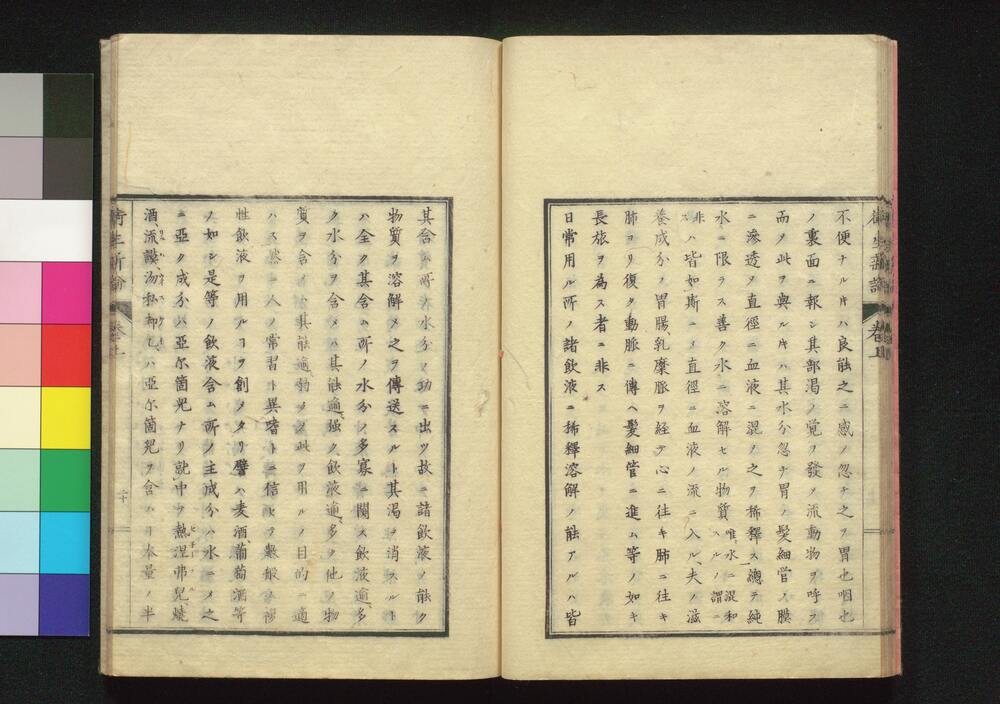 不便ナル片ハ良能之ニ感ノ忽チ之ヲ胃也咽也
ノ裏面ニ報シ其部渇ノ覚ヲ發ノ流動物ヲ呼ヲ
而ノ此ヲ與ル片ハ其水分忽チ胃ノ髪細管ノ膜
ニ滲透ヲ直徑ニ血液ニ混ノ之ヲ稀釋ス總テ純
水ニ限ラス善ク水ニ溶解セル物質唯水ニ混和スルノ謂ニ
非スハ皆如斯ニメ直徑ニ血液ノ流ニ入ル、夫ノ滋
養成分ノ胃腸、乳糜脈ヲ経テ心ニ往キ肺ニ往キ
肺ヨリ復タ動脈ニ傳ヘ髪細管ニ進ム等ノ如キ
長旅ヲ為ス者ニ非ス
日常用ル所ノ諸飲液ニ稀釋溶解ノ能アルハ皆
其含ム所ノ水分ノ功ニ出ツ故ニ諸飲液ノ能ク
物質ヲ溶解メ之ヲ傳送スルト其渇ヲ消スルト
ハ全ク其含ム所ノ水分ノ多寡ニ関ス飲液逾多
ク水分ヲ含メハ其能逾強ク飲液逾多ク他ノ物
質ヲ含メハ其能逾弱シ此ヲ用ルノ目的ニ適
ハス然ニ人ノ常習ト異嗜トニ信セヲ數般ノ
性飲液ヲ用ルヿヲ創メタリ譬ハ麦酒、葡萄酒等
ノ如シ是等ノ飲液含ム所ノ主成分ハ水ニメ之
ニ亞ク成分ハ亞尔箇児ナリ就中ヲ熱涅弗児燒
酒、流謨、ハ亞尔箇児ヲ含ハヿ本量ノ半
衛生新論
巻上
二十